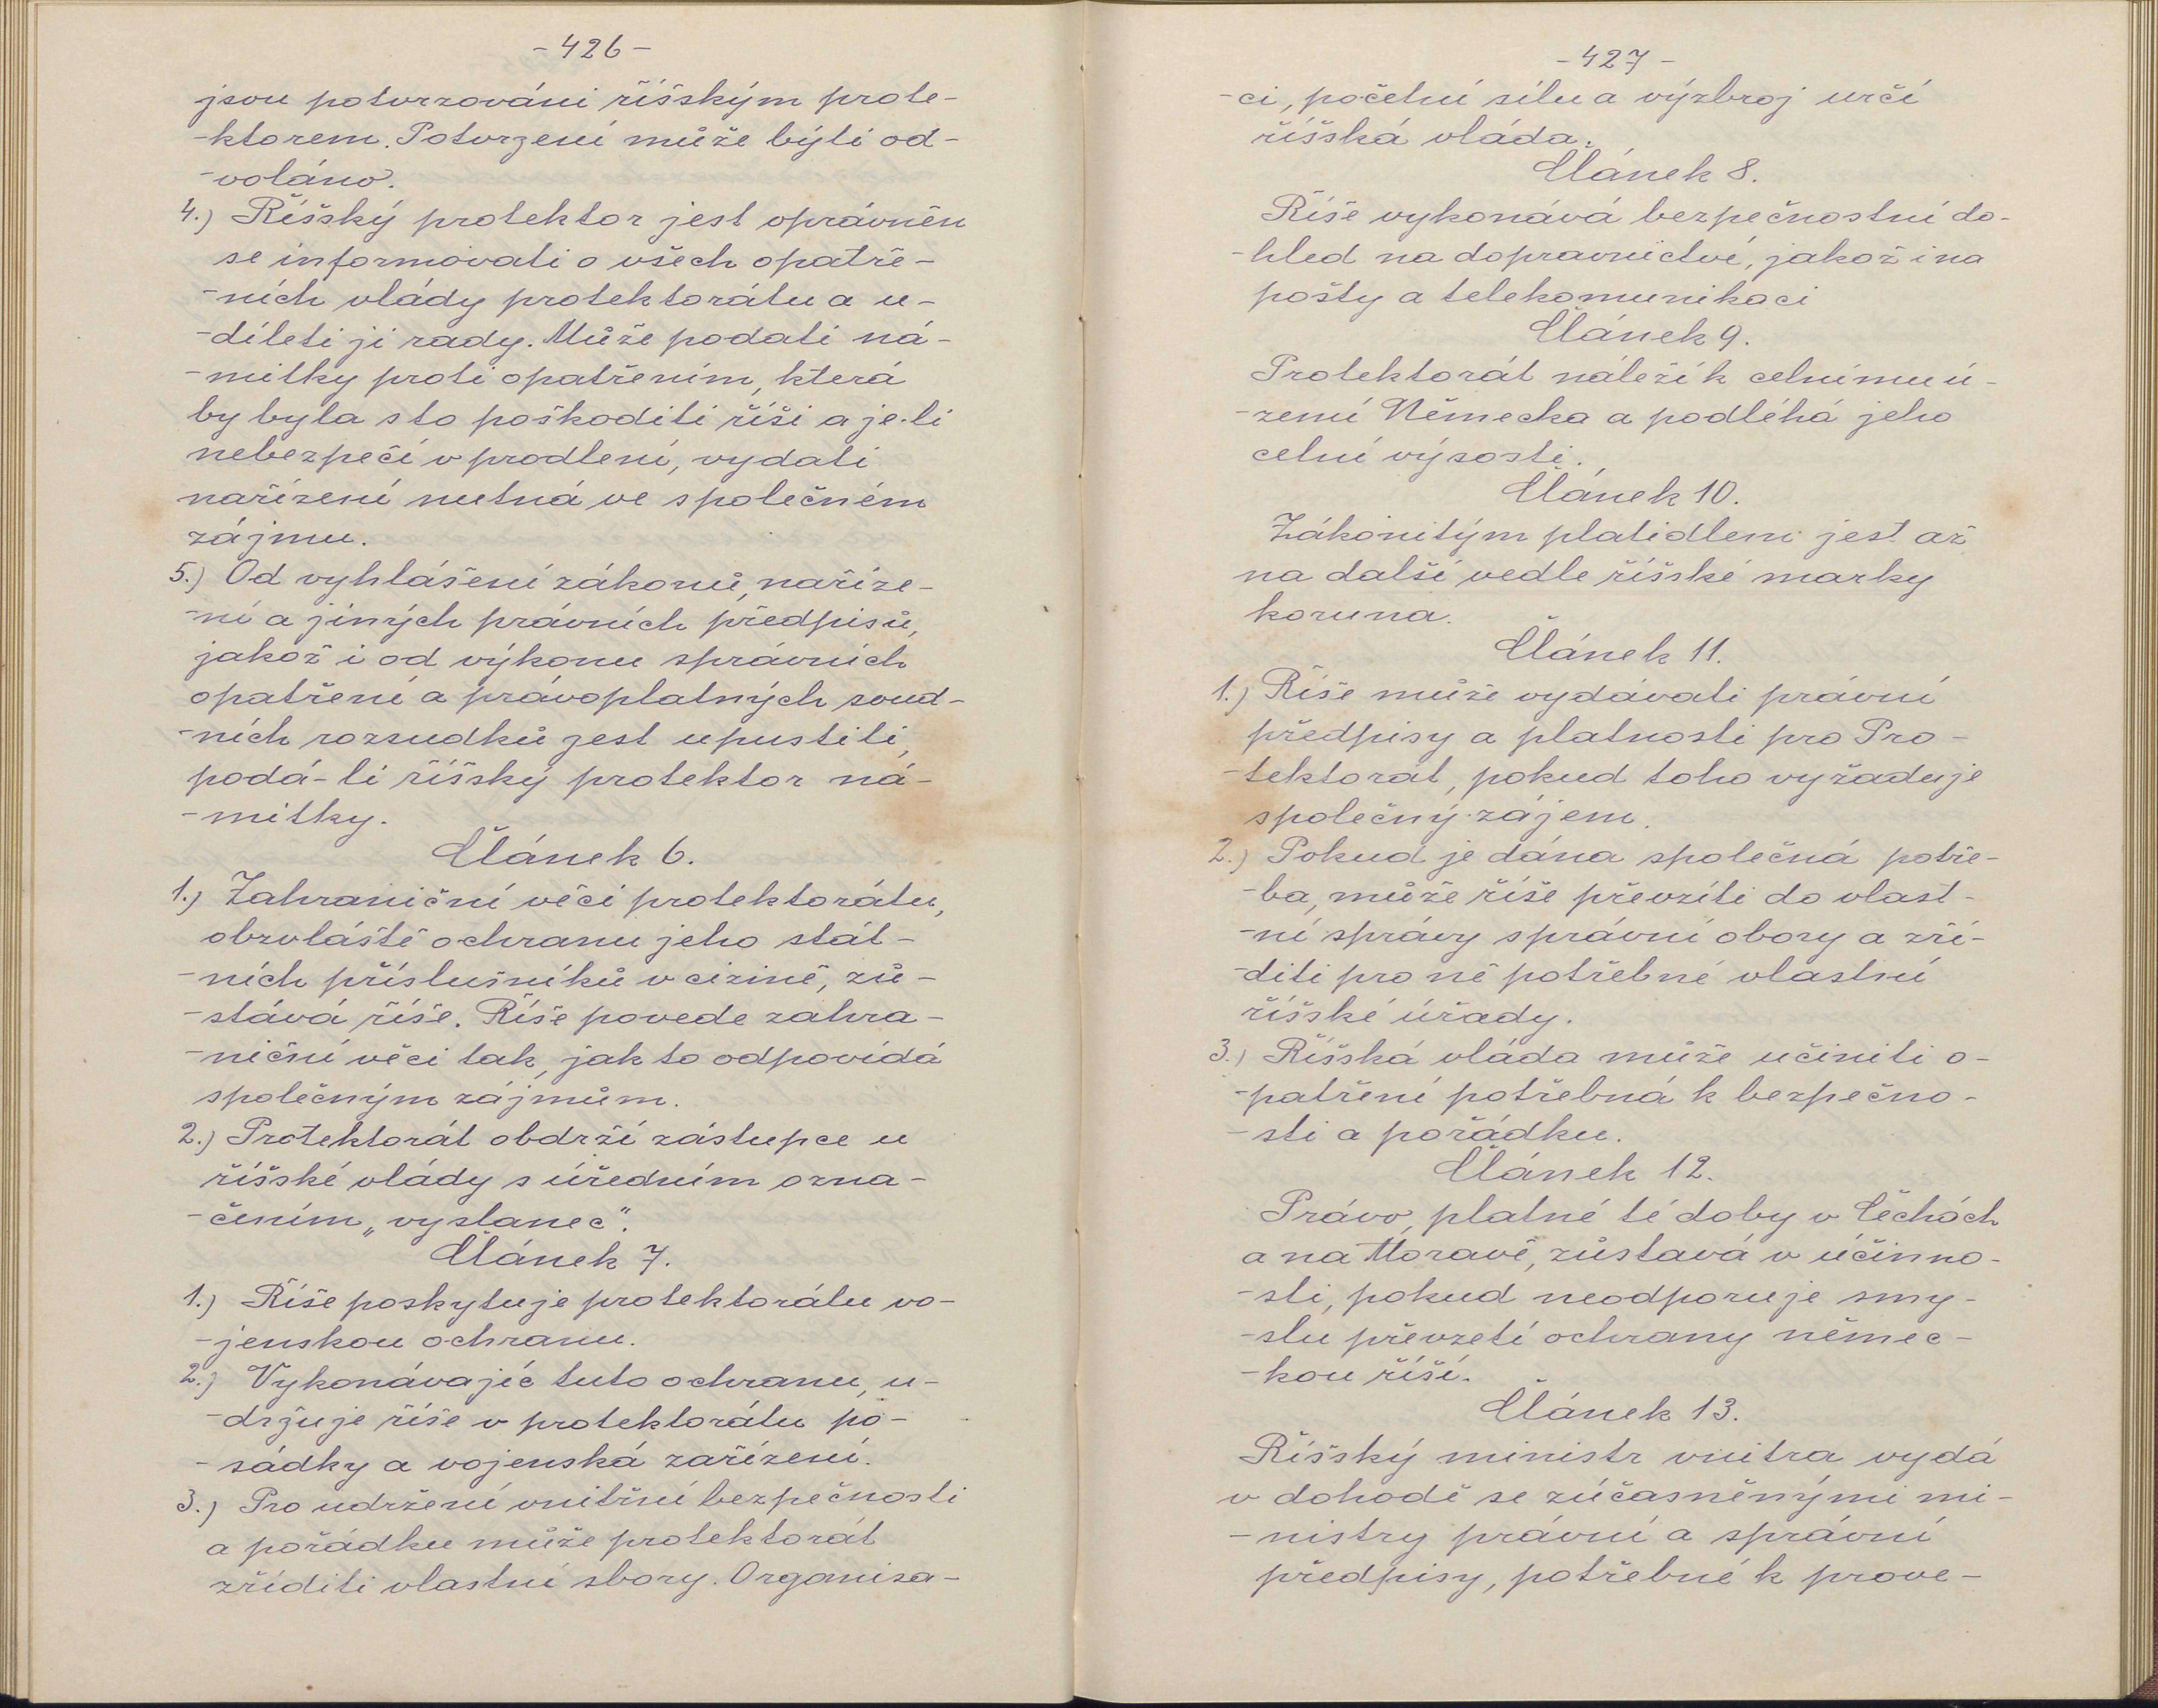 - 426 -
jsou potvrzováni říšským prote-
-ktorem. Potvrzení může býti od-
-voláno.
4.) Říšský protektor jest oprávněn
se informovati o všech opatře-
-ních vlády protektorátu a u-
-díleti ji rady. Může podati ná-
-mitky proti opatřením, která
by byla s to poškoditi říši a je-li
nebezpečí v prodlení, vydati
nařízení nutná ve společném
zájmu.
5.) Od vyhlášení zákonů, naříze-
-ní a jiných právních předpisů,
jakož i od výkonu správních
opatření a právoplatných soud-
-ních rozsudků jest upustiti,
podá-li říšský protektor ná-
-mitky.
Článek 6.
1.) Zahraniční věci protektorátu,
obzvláště ochranu jeho stát-
-ních příslušníků v cizině, zů-
-stává říše. Říše povede zahra-
-niční věci tak, jak to odpovídá
společným zájmům.
2.) Protektorát obdrží zástupce u
říšské vlády s úředním ozna-
-čením „vyslanec".
Článek 7.
1.) Říše poskytuje protektorátu vo-
-jenskou ochranu.
2.) Vykonávajíc tuto ochranu, u-
-držuje říše v protektorátu po-
-sádky a vojenská zařízení.
3.) Pro udržení vnitřní bezpečnosti
a pořádku může protektorát
zříditi vlastní sbory. Organisa-
- 427 -
-ci, početní sílu a výzbroj určí
říšská vláda.
Článek 8.
Říše vykonává bezpečnostní do-
-hled na dopravnictví, jakož i na
pošty a telekomunikaci
Článek 9.
Protektorát náleží k celnímu ú-
-zemí Německa a podléhá jeho
celní výsosti.
Článek 10.
Zákonitým platidlem jest až
na další vedle říšské marky
koruna.
Článek 11.
1.) Říše může vydávati právní
předpisy a platnosti pro Pro-
-tektorát, pokud toho vyžaduje
společný zájem.
2.) Pokud je dána společná potře-
-ba, může říše převzíti do vlast-
-ní správy správní obory a zří-
-diti pro ně potřebné vlastní
říšské úřady.
3.) Říšská vláda může učiniti o-
-patření potřebná k bezpečno-
-sti a pořádku.
Článek 12.
Právo, platné té doby v Čechách
a na Moravě, zůstavá v účinno-
-sti, pokud neodporuje smy-
-slu převzetí ochrany němec-
-kou říší.
Článek 13.
Říšský ministr vnitra vydá
v dohodě se zúčasněnými mi-
-nistry právní a správní
předpisy, potřebné k prove-